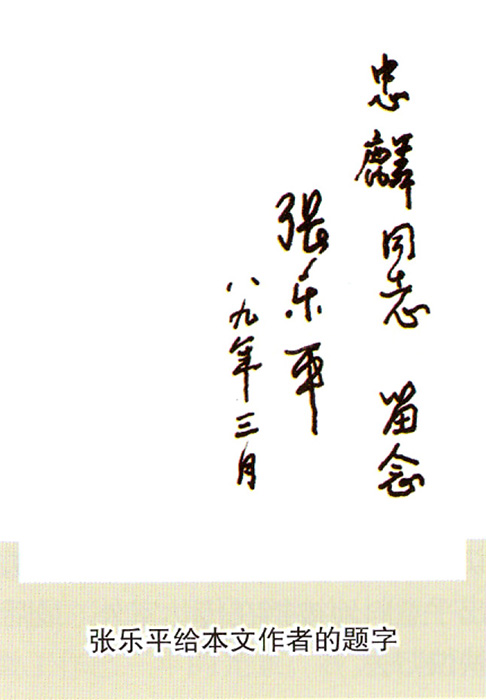 忠麟同志 留念
张乐平
八九年三月
张乐平给本文作者的题字